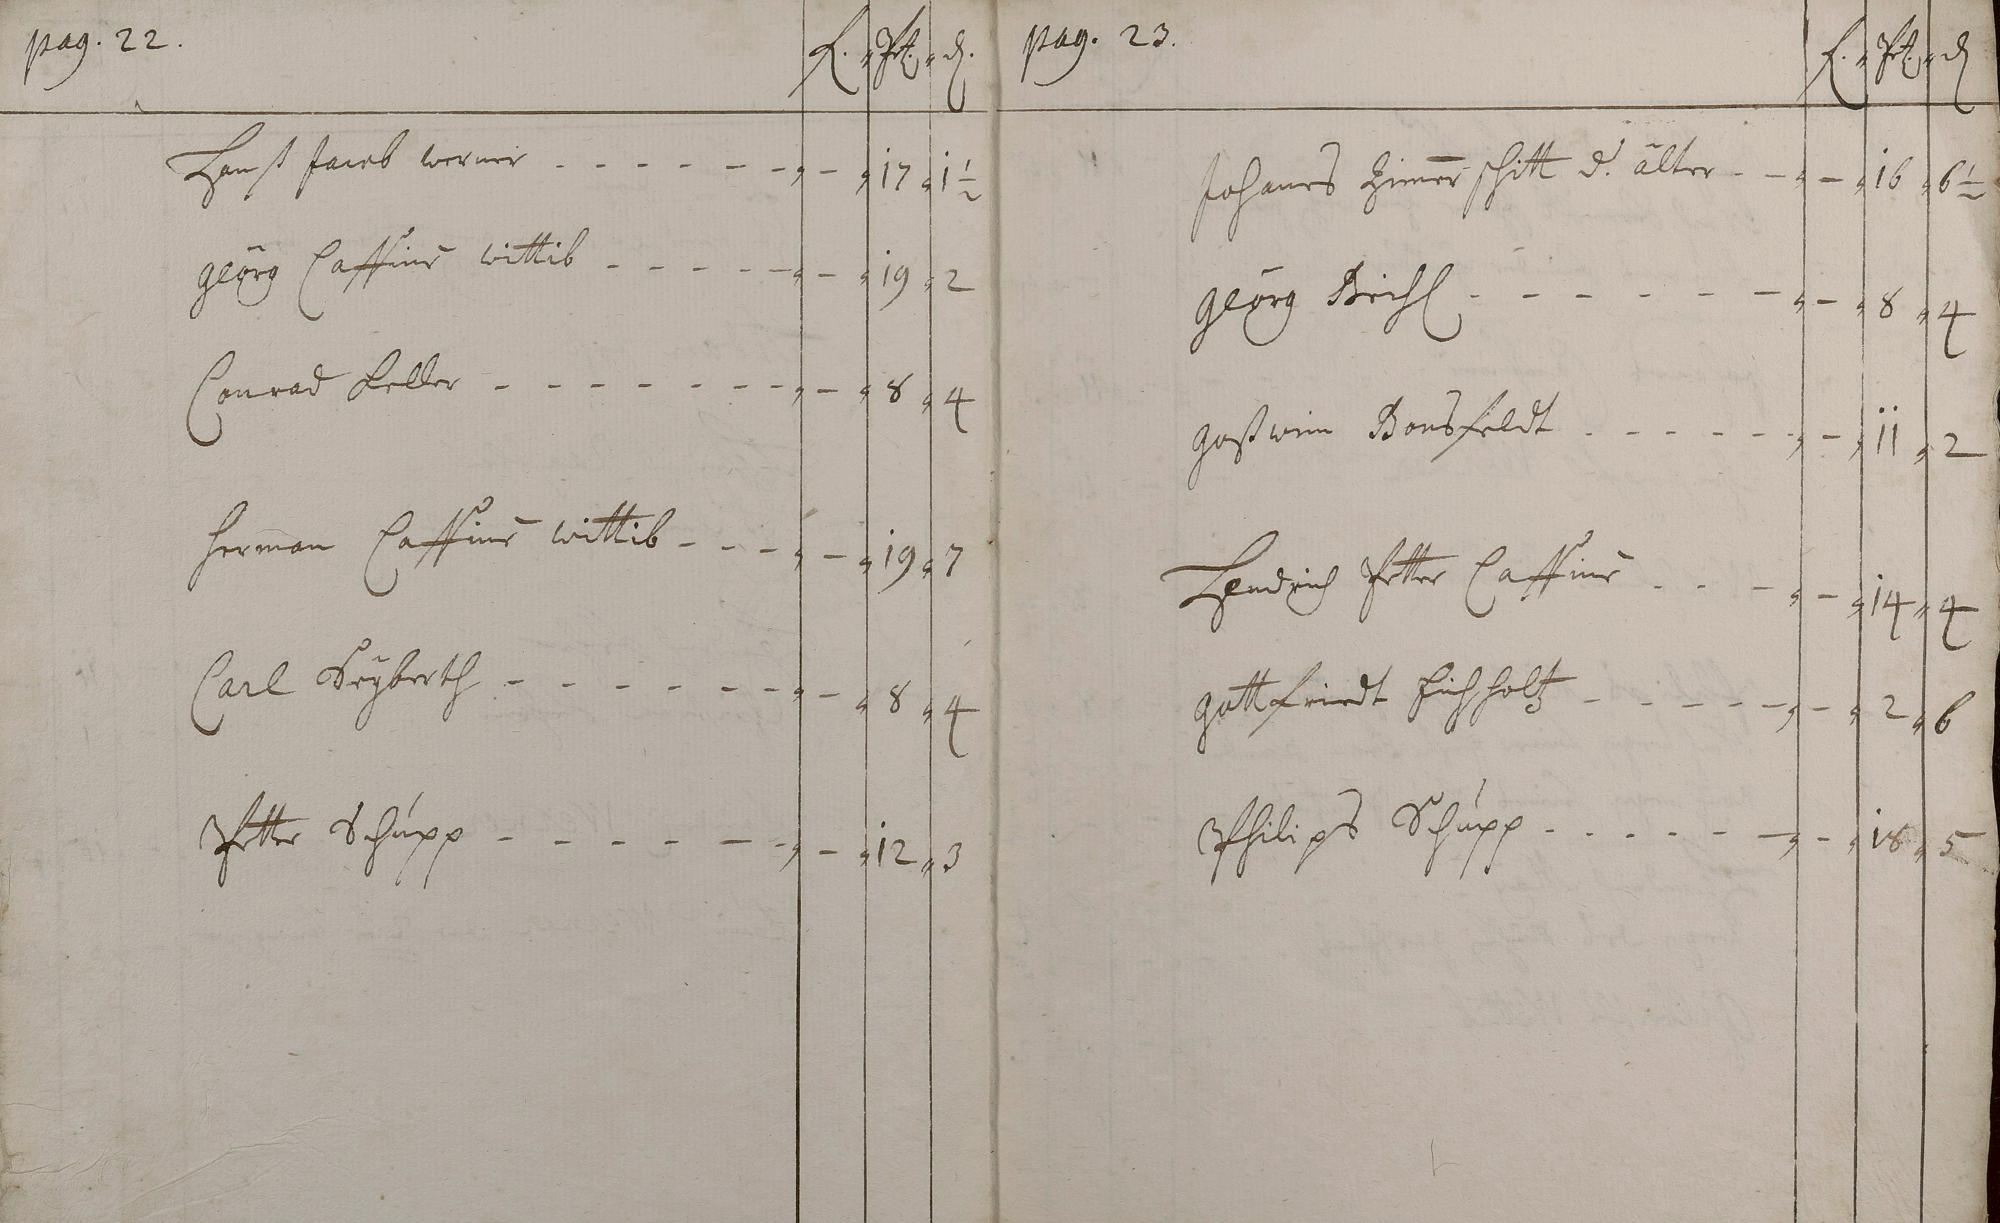 pag. 22.
f. " Pt. " d.
Hanß Jacob werner - - - - - - " - " 17 " 1 1/2
geörg Cassius wittib - - - - - " - " 19 " 2
Conrad Keller - - - - - - - " - " 8 " 4
Herman Cassius wittib - - - " - " 19 " 7
Carl Seÿberth - - - - - - " - " 8 " 4
Petter Schupp - - - - - - " - " 12 " 3
pag. 23.
f. " Pt. " d
Johanes Zimerschitt d. älter - - " - " 16 " 6 1/2
geörg - - - - - - - " - " 8 " 4
goßwin Bonsfeldt - - - - - " - " 11 " 2
Hendrich Petter Cassius - - - " - " 14 " 4
gottfriedt Eichholtz - - - - - " - " 2 " 6
Philips Schupp - - - - - - " - " 18 " 5